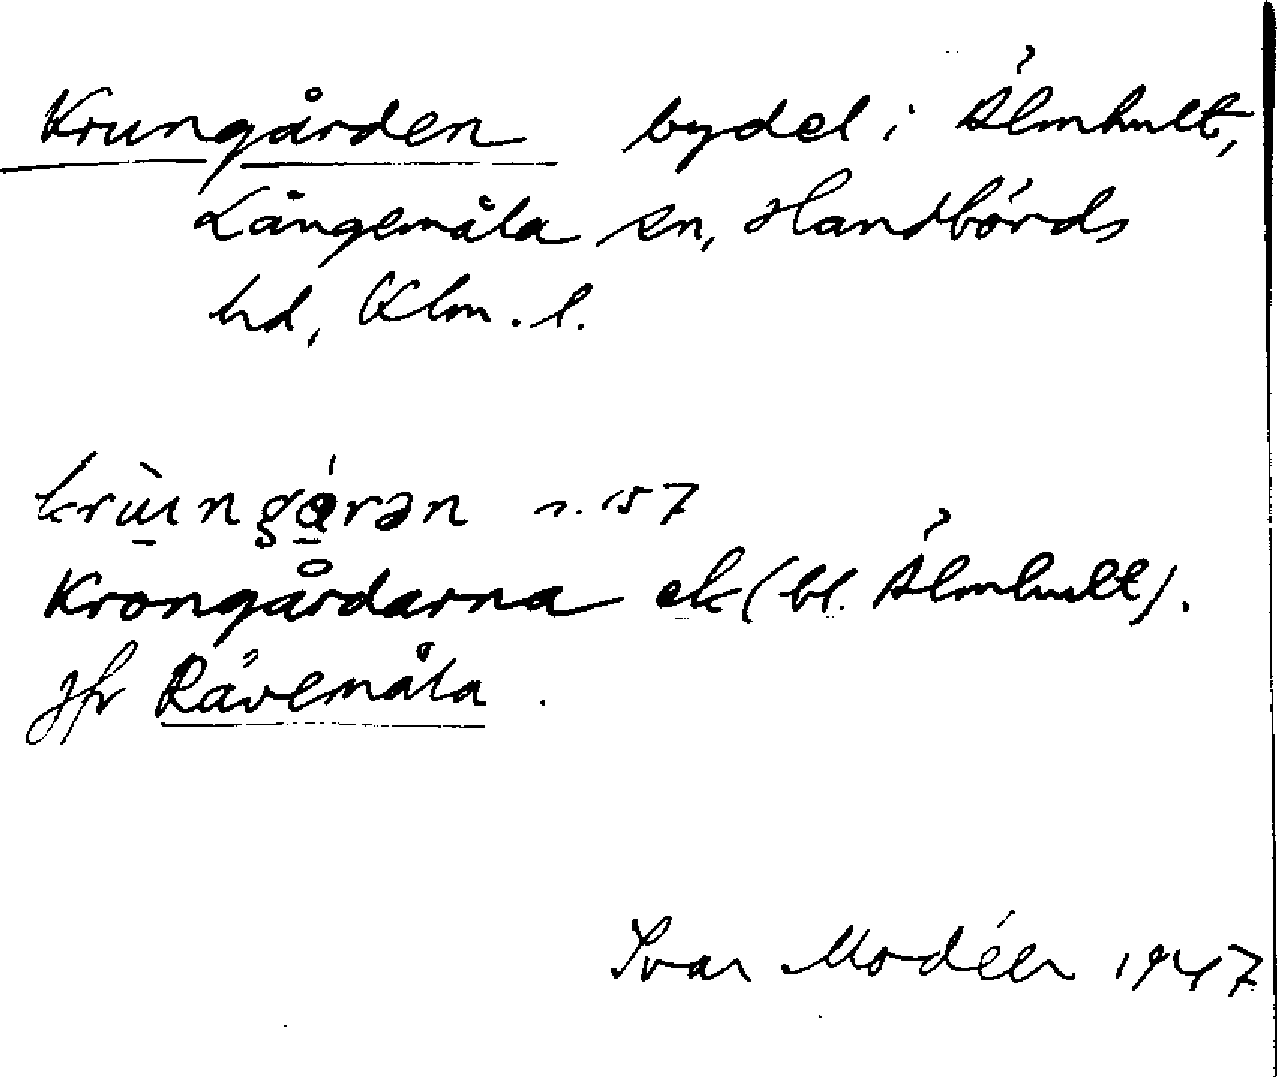 Krungården bydel i Älmhult,
Långemåla sn, Handbörds
hd, Klm. l.
Krongårdarna ek (bl. Älmhult).
Jfr Rävemåla.
Ivar Modéer 1947